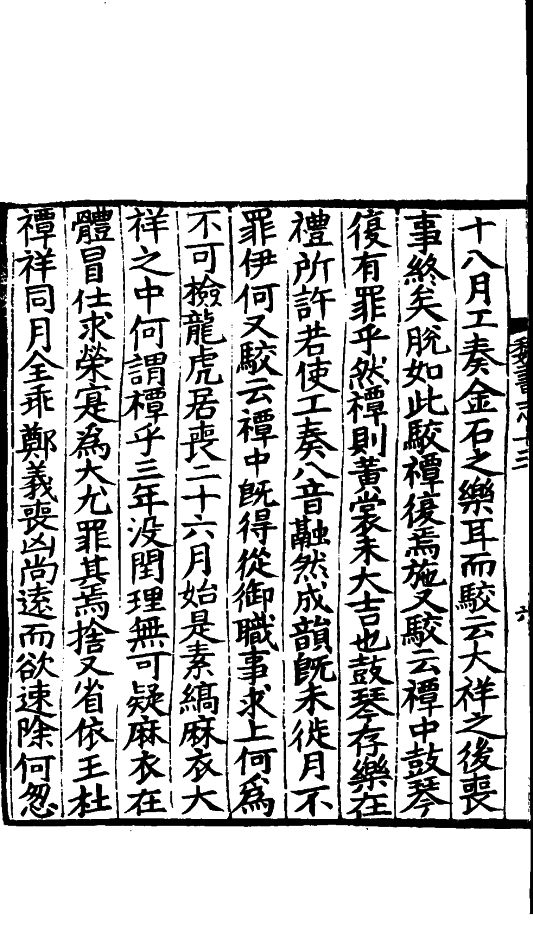 十八月工奏金石之樂耳而駮云大祥之後喪
事終矣脫如此駮禫復焉施又駮云禫中鼓琴
復有罪乎然禫則黃裳未大吉也鼓琴存樂在
禮所許若使工奏八音融然成韻旣未徙月不
罪伊何又駮云禫中旣得從御職事求上何爲
不可檢龍虎居喪二十六月始是素縞麻衣大
祥之中何謂禫乎三年没閏理無可疑麻衣在
體冒仕求榮寔爲大尤罪其焉捨又省依王杜
禫祥同月全乖鄭義喪凶尚遠而欲速除何怱